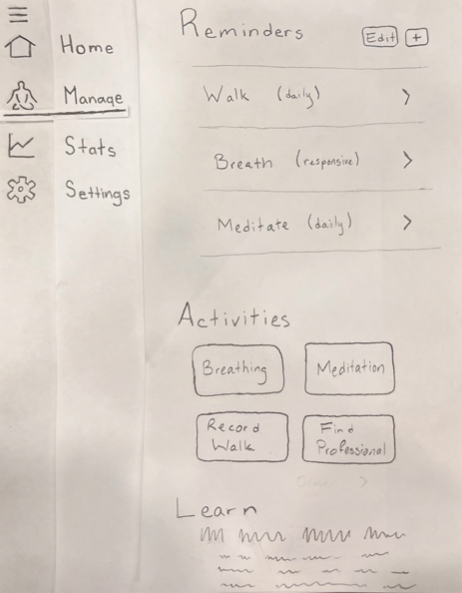 Home
Manage
Stats
Settings
Reminders
Edit +
Walk (daily) >
Breath (responsive) >
Meditate (daily) >
Activities
Breathing
Meditation
Record
Walk
Find
Professional
Learn